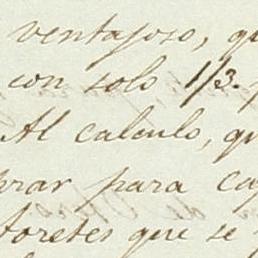 ventajoso, qu
con solo 1/3.
Al calculo, qu
prar para ca
toretes que se